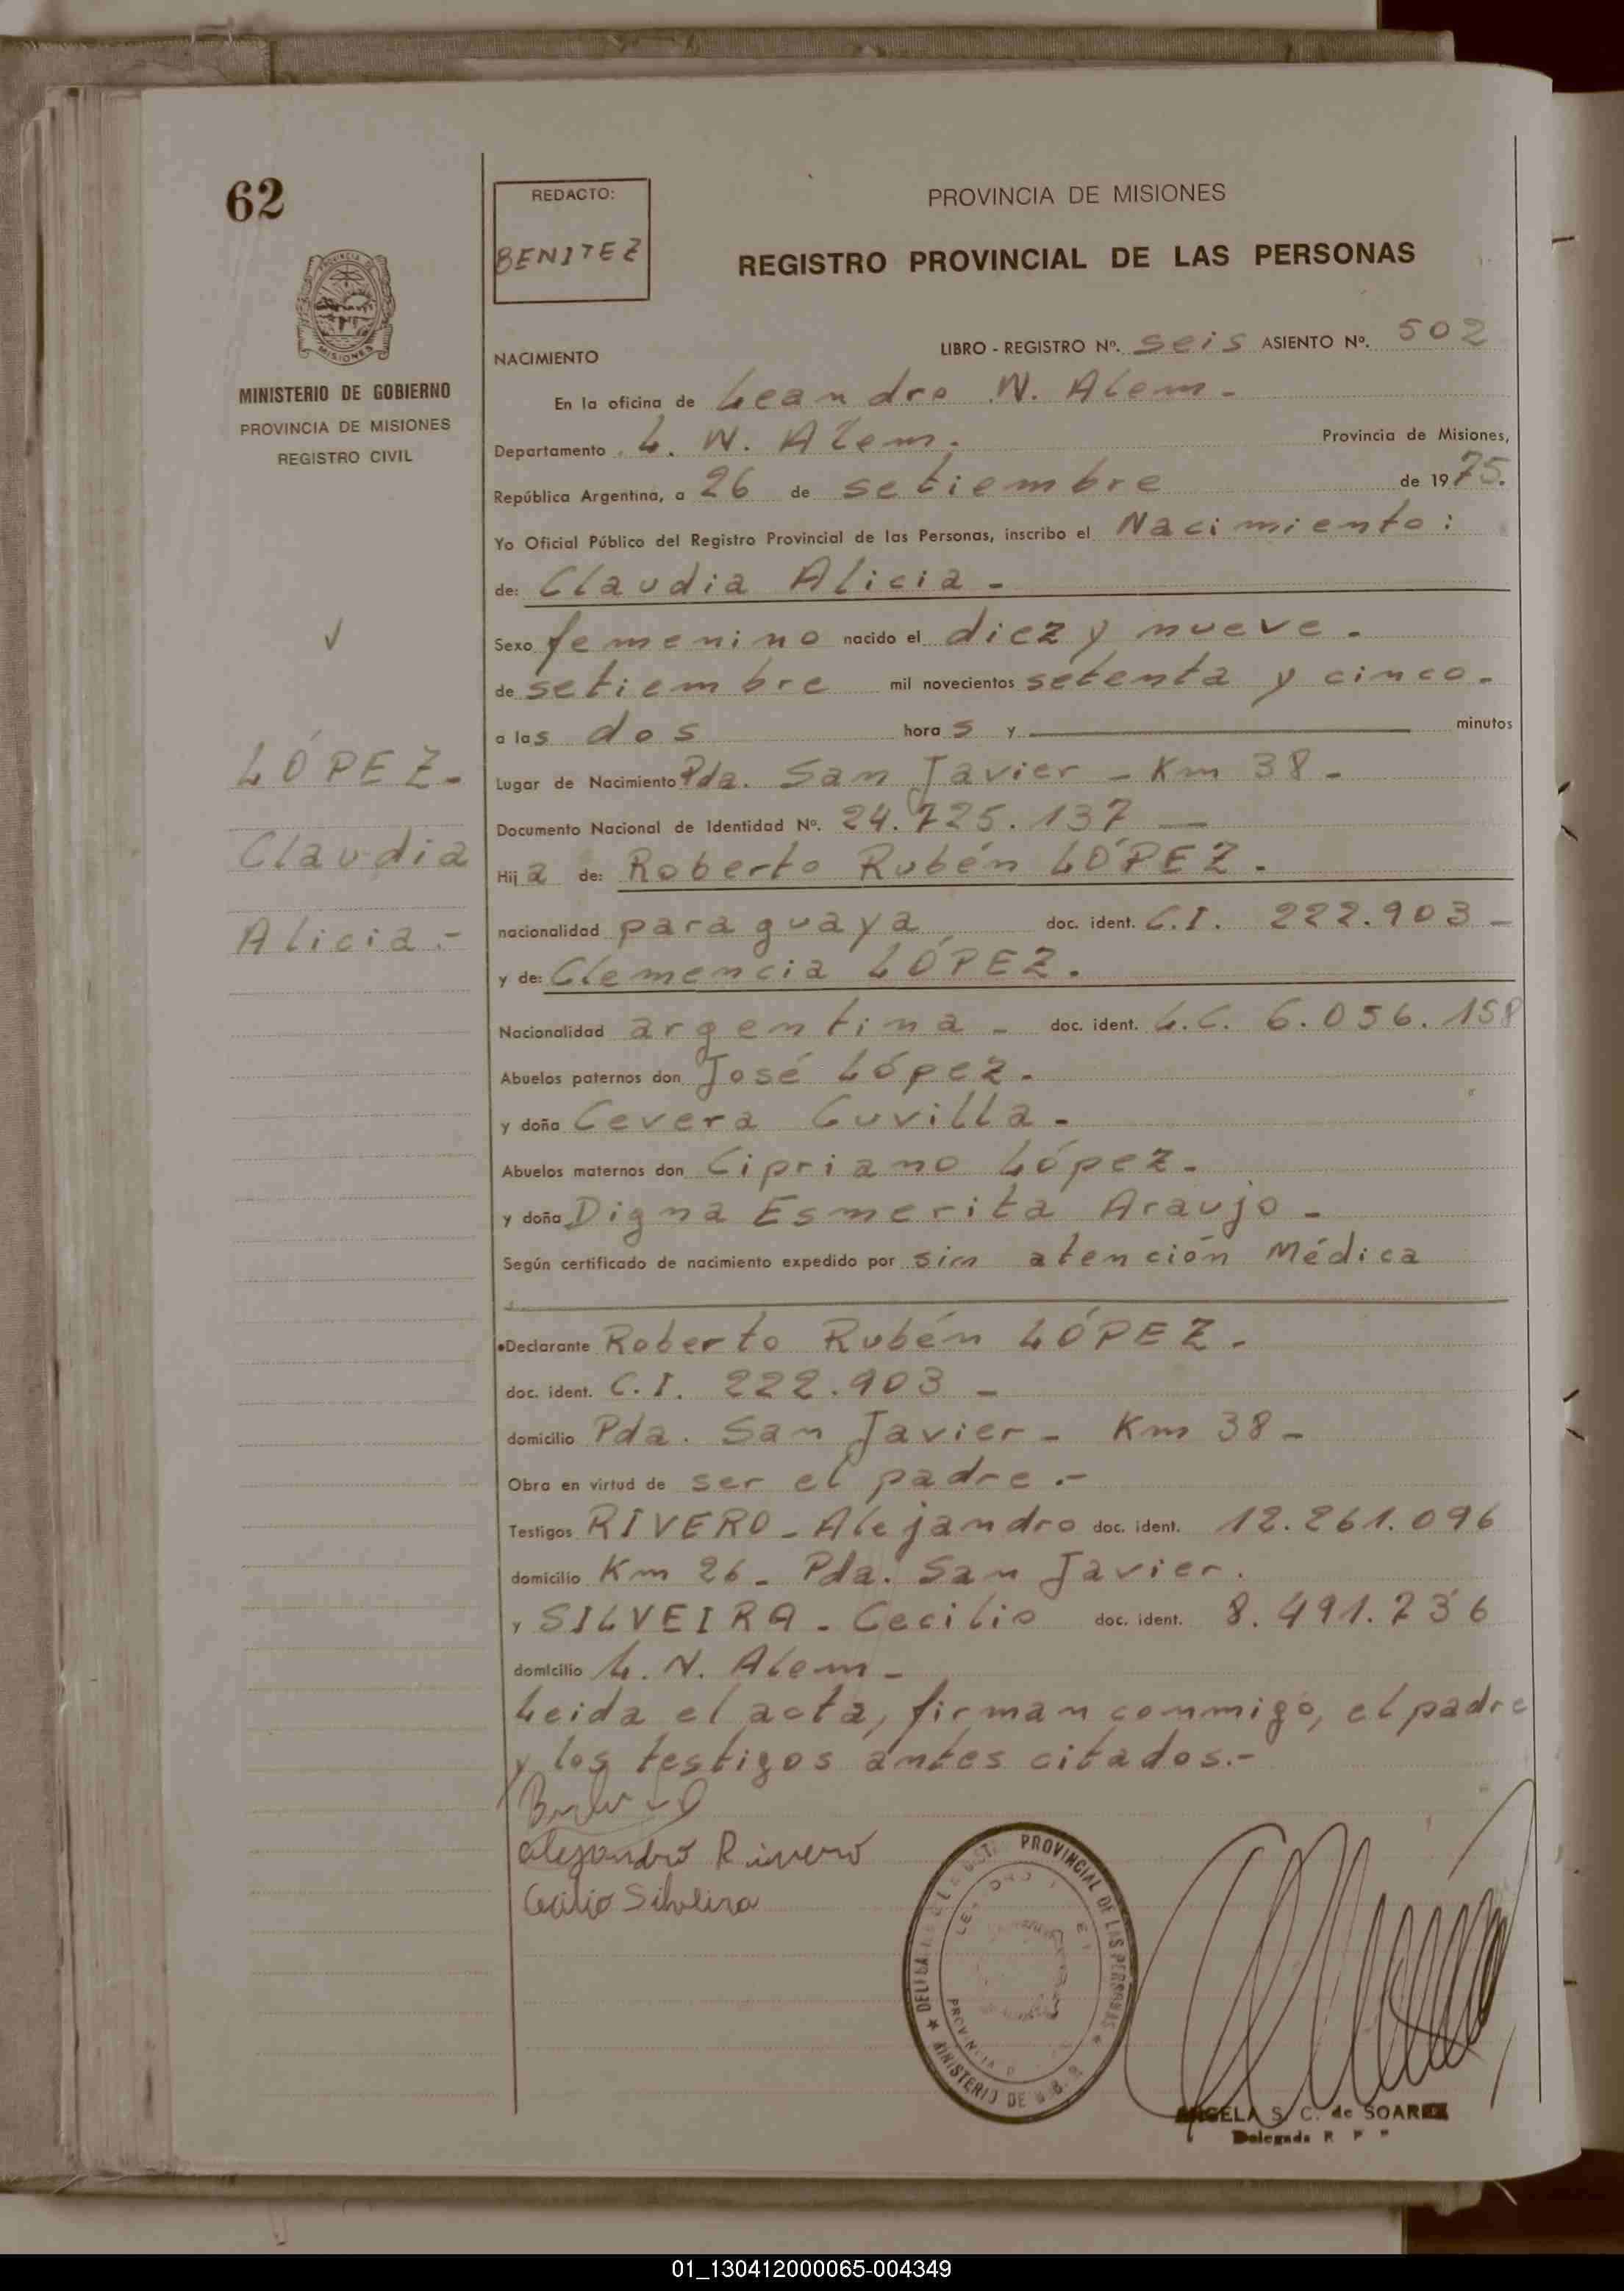 62
REDACTO:
BENITEZ
PROVINCIA DE MISIONES
REGISTRO PROVINCIAL DE LAS PERSONAS
MISIONES
MINISTERIO DE GOBIERNO
PROVINCIA DE MISIONES
REGISTRO CIVIL
NACIMIENTO
LIBRO - REGISTRO Nº. seis ASIENTO Nº. 502
En la oficina de Leandro N. Alem -
Departamento L. N. Alem. Provincia de Misiones,
República Argentina, a 26 de setiembre de 1975.
Yo Oficial Público del Registro Provincial de las Personas, inscribo el Nacimiento:
de: Claudia Alicia -
Sexo femenino nacido el diez y nueve -
de setiembre mil novecientos setenta y cinco -
a las dos horas y minutos
LÓPEZ -
Lugar de Nacimiento Pda. San Javier - Km 38 -
Documento Nacional de Identidad Nº. 24.725.137 —
Claudia
Hija de: Roberto Rubén LÓPEZ -
Alicia.-
nacionalidad paraguaya doc. ident. C.I. 222.903 -
y de: Clemencia LÓPEZ.
Nacionalidad argentina - doc. ident. L.C. 6.056.158
Abuelos paternos don José López -
y doña Cevera Cuvilla -
Abuelos maternos don Cipriano López -
y doña Digna Esmerita Araujo -
Según certificado de nacimiento expedido por sin atención Médica
Declarante Roberto Rubén LÓPEZ -
doc. ident. C.I. 222.903 -
domicilio Pda. San Javier - Km 38 -
Obra en virtud de ser el padre.-
Testigos RIVERO - Alejandro doc. ident. 12.261.096
domicilio Km 26 - Pda. San Javier.
y SILVEIRA - Cecilio doc. ident. 8.491.236
domicilio L. N. Alem -
Leida el acta, firman conmigo, el padre
y los testigos antes citados.-
Alejandro Rivero
Cecilio Silveira
PROVINCIAL DE LAS PERSONAS
MINISTERIO DE
ANGELA S. C. de SOAREZ
Delegada R P P
01_130412000065-004349